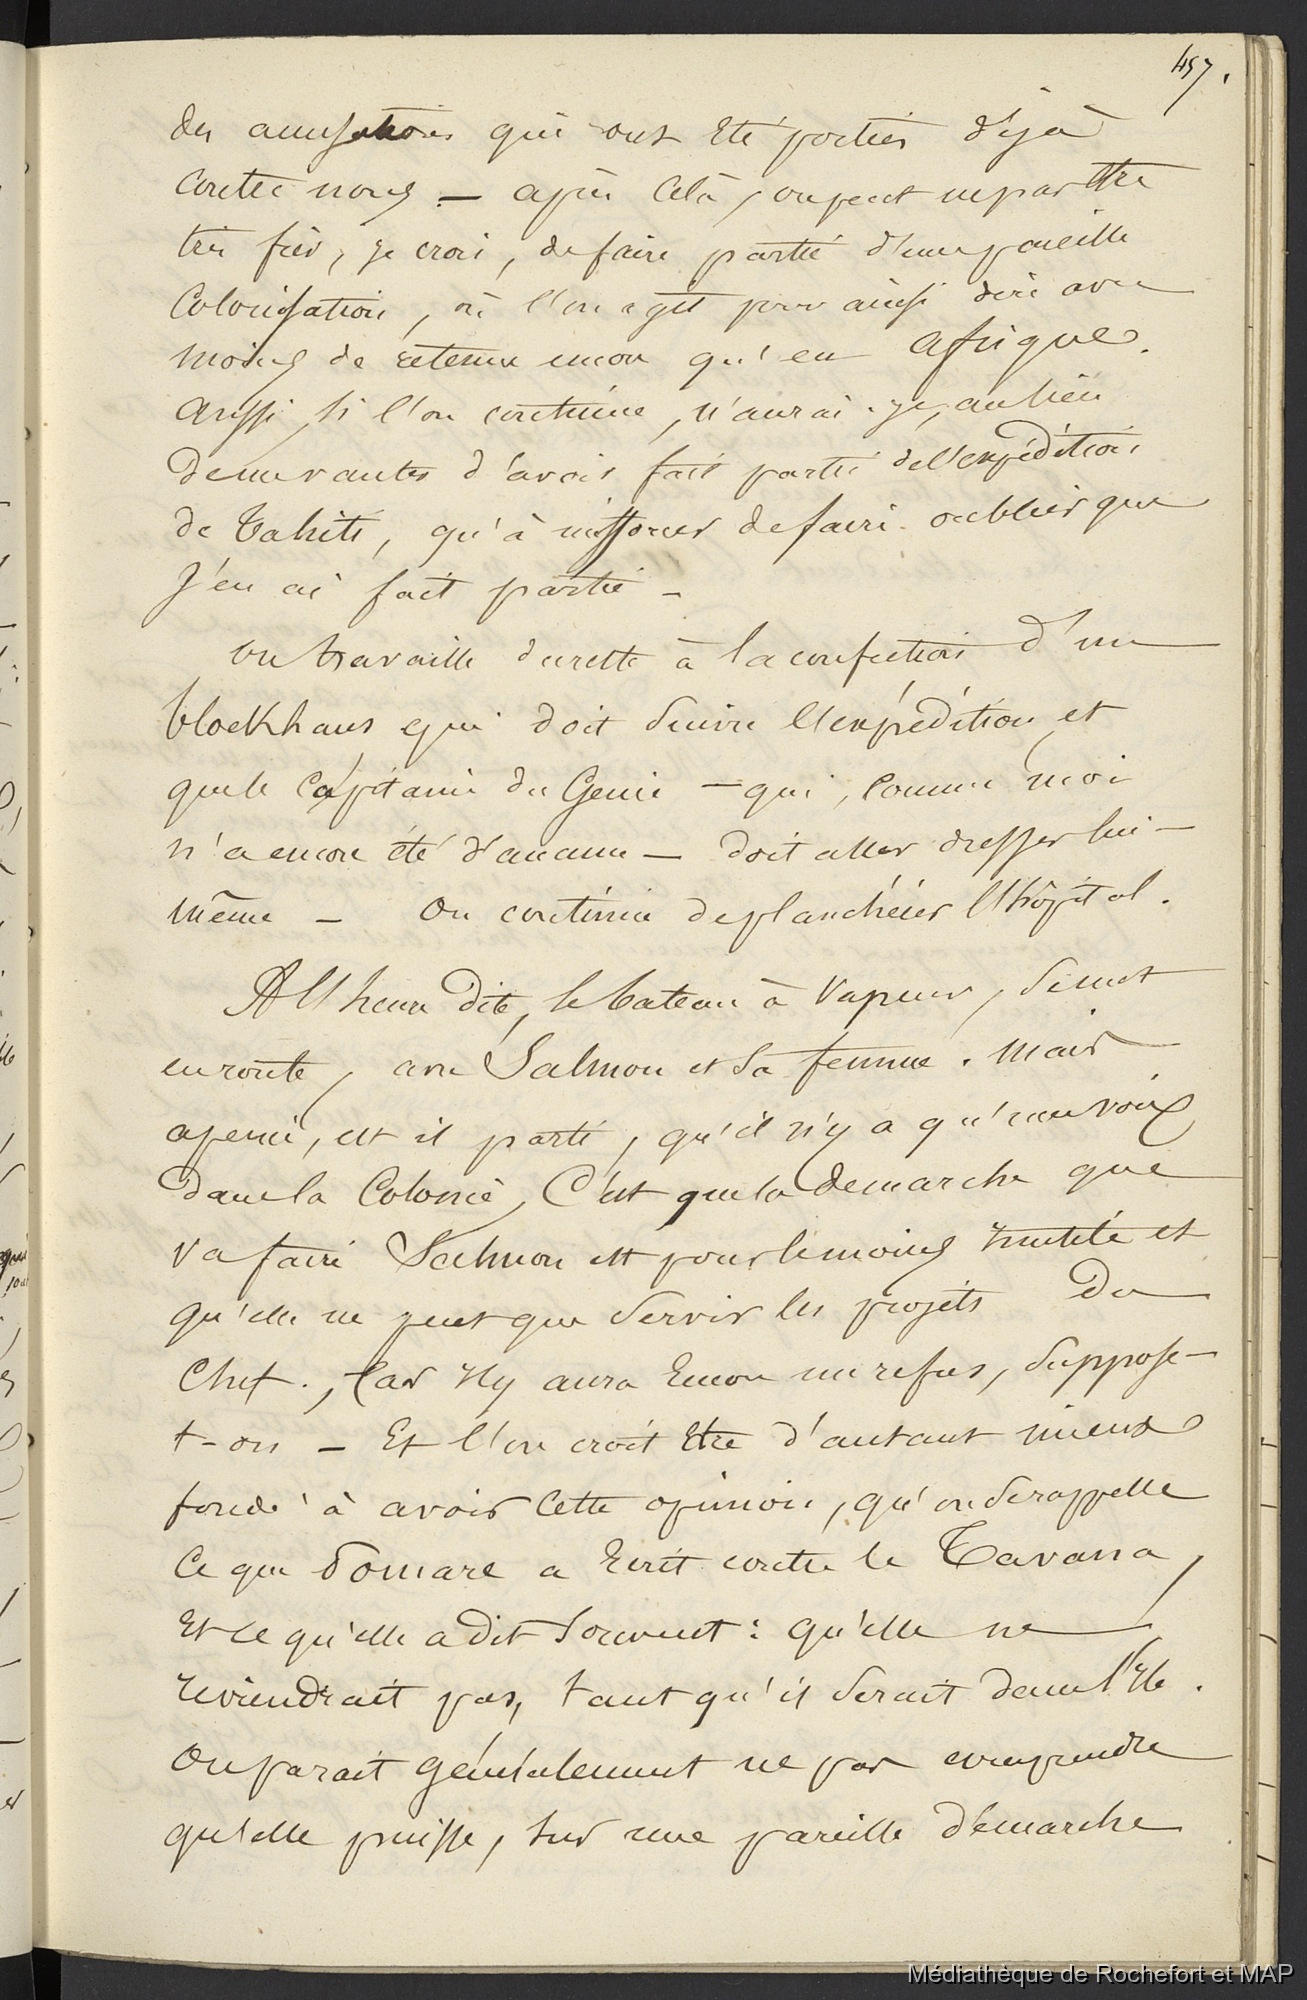 457.
des accusations qui ont été portées déjà
contre nous — après celà, on peut
très fier, je crois, de faire partie d'une pareille
Colonisation, où l'on agit pour ainsi dire avec
moins de retenue encore qu'en Afrique.
Aussi si l'on continue, n'aurai-je, au lieu
de me vanter d'avoir fait partie de l'expédition
de Tahiti, qu'à m'efforcer de faire oublier que
j'en ai fait partie —
On travaille du reste à la confection d'un
blockhaus qui doit suivre l'expédition et
que le Capitaine du Génie — qui, comme moi
n'a encore été d'aucune — doit aller dresser lui-
même — On continue de planchéier l'hôpital.
A l'heure dite, le bateau à vapeur, se met
en route, avec Salmon et sa femme. Mais
à peine, est il parti, qu'il n'y a qu'une voix
dans la Colonie, C'est que la démarche que
va faire Salmon est pour le moins inutile et
qu'elle ne peut que servir les projets du
Chef., Car il y aura encore un refus, suppose-
t-on — Et l'on croit être d'autant mieux
fondé à avoir cette opinion, qu'on se rappelle
ce que Pomare a écrit contre le Tavana,
Et ce qu'elle a dit souvent : qu'elle ne
reviendrait pas, tant qu'il serait dans l'Ile.
On parait généralement ne pas comprendre
qu'elle puisse, sur une pareille démarche
Médiathèque de Rochefort et MAP